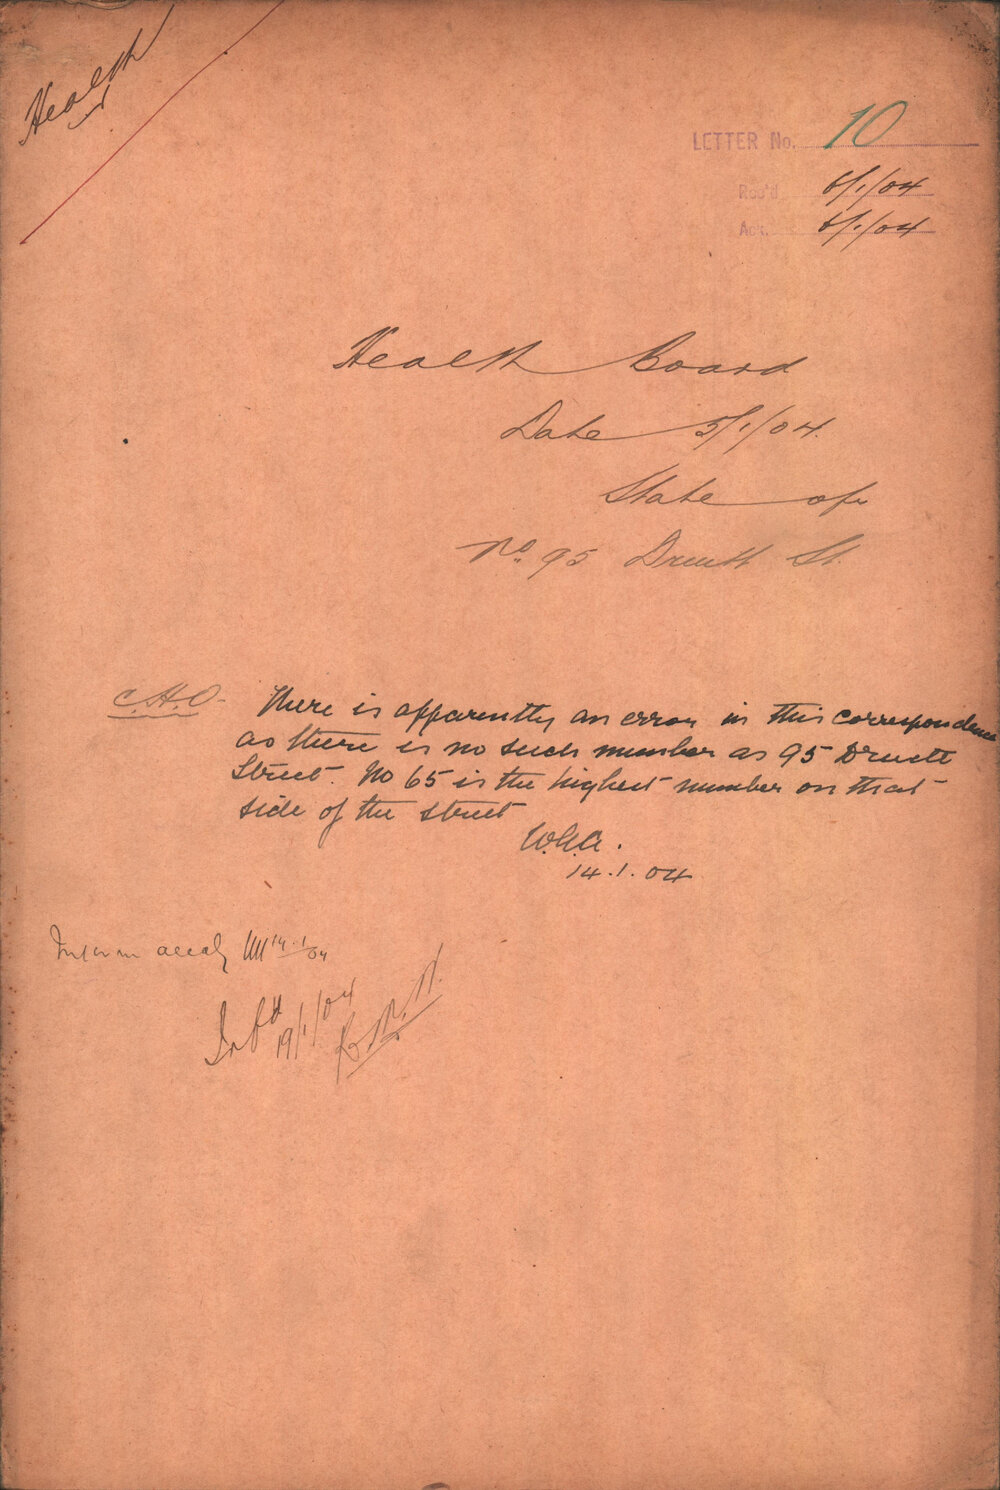 Health
LETTER No. 10
Rec'd 6/1/04
Ack. 6/1/04
Health Board
Date 5/1/04.
State of
No. 95 Druitt St.
C.H.O. There is apparently an error in this correspondence
as there is no such number as 95 Druitt
Street. No 65 is the highest number on that
side of the street
W.G.A.
14.1.04
Inform accdly 14.1/04
Infd 19/1/04